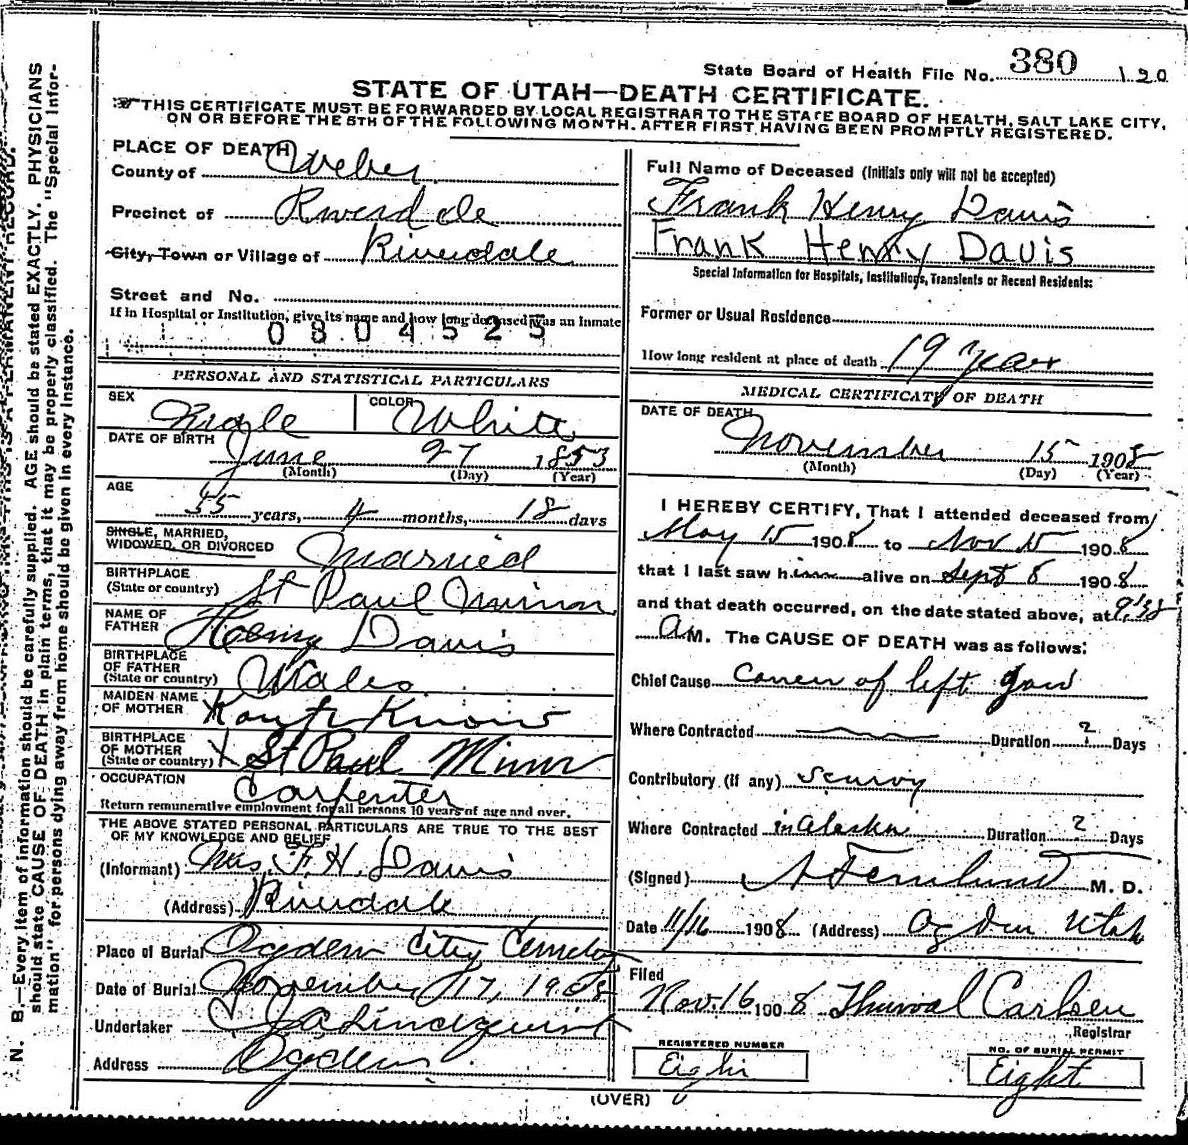 State Board of Health File No. 380 120
STATE OF UTAH—DEATH CERTIFICATE.
THIS CERTIFICATE MUST BE FORWARDED BY LOCAL REGISTRAR TO THE STATE BOARD OF HEALTH, SALT LAKE CITY,
ON OR BEFORE THE 5TH OF THE FOLLOWING MONTH. AFTER FIRST HAVING BEEN PROMPTLY REGISTERED.
PLACE OF DEATH
County of Weber
Precinct of Riverdale
City, Town or Village of Riverdale
Street and No.
If in Hospital or Institution, give its name and how long deceased was an inmate
0804523
PERSONAL AND STATISTICAL PARTICULARS
SEX Male COLOR White
DATE OF BIRTH June 27 1853
(Month) (Day) (Year)
AGE
55 years, 4 months, 18 days
SINGLE, MARRIED,
WIDOWED, OR DIVORCED Married
BIRTHPLACE
(State or country) St Paul Minn
NAME OF
FATHER Henry Davis
BIRTHPLACE
OF FATHER
(State or country) Wales
MAIDEN NAME
OF MOTHER X Know
BIRTHPLACE
OF MOTHER
(State or country) X St Paul Minn
OCCUPATION
Carpenter
Return remunerative employment for all persons 10 years of age and over.
THE ABOVE STATED PERSONAL PARTICULARS ARE TRUE TO THE BEST
OF MY KNOWLEDGE AND BELIEF
(Informant) Mrs. F. H. Davis
(Address) Riverdale
Place of Burial Ogden City Cemetery
Date of Burial November 17, 1908
Undertaker J A Lindquist
Address Ogden
Full Name of Deceased (Initials only will not be accepted)
Frank Henry Davis
Frank Henry Davis
Special Information for Hospitals, Institutions, Transients or Recent Residents:
Former or Usual Residence
How long resident at place of death 19 Year
MEDICAL CERTIFICATE OF DEATH
DATE OF DEATH
November 15 1908
(Month) (Day) (Year)
I HEREBY CERTIFY, That I attended deceased from
May 15 1908 to Nov 15 1908
that I last saw him alive on Sept 8 1908
and that death occurred, on the date stated above, at 9:38
A M. The CAUSE OF DEATH was as follows:
Chief Cause Cancer of left jaw
Where Contracted Duration ? Days
Contributory (if any) Scurvy
Where Contracted in Alaska Duration ? Days
(Signed) M. D.
Date 11/16 1908 (Address) Ogden Utah
Filed
Nov. 16 1908 Thorval Carlsen
Registrar
REGISTERED NUMBER
Eight
NO. OF BURIAL PERMIT
Eight
(OVER)
N. B.—Every item of information should be carefully supplied. AGE should be stated EXACTLY. PHYSICIANS
should state CAUSE OF DEATH in plain terms, that it may be properly classified. The "Special Infor-
mation" for persons dying away from home should be given in every instance.